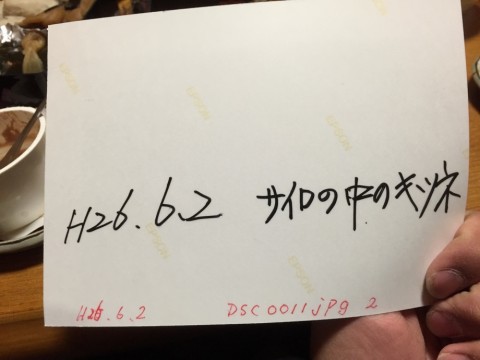 H26.6.2 サイロの中のキツネ
H26.6.2 DSC0011jpg 2